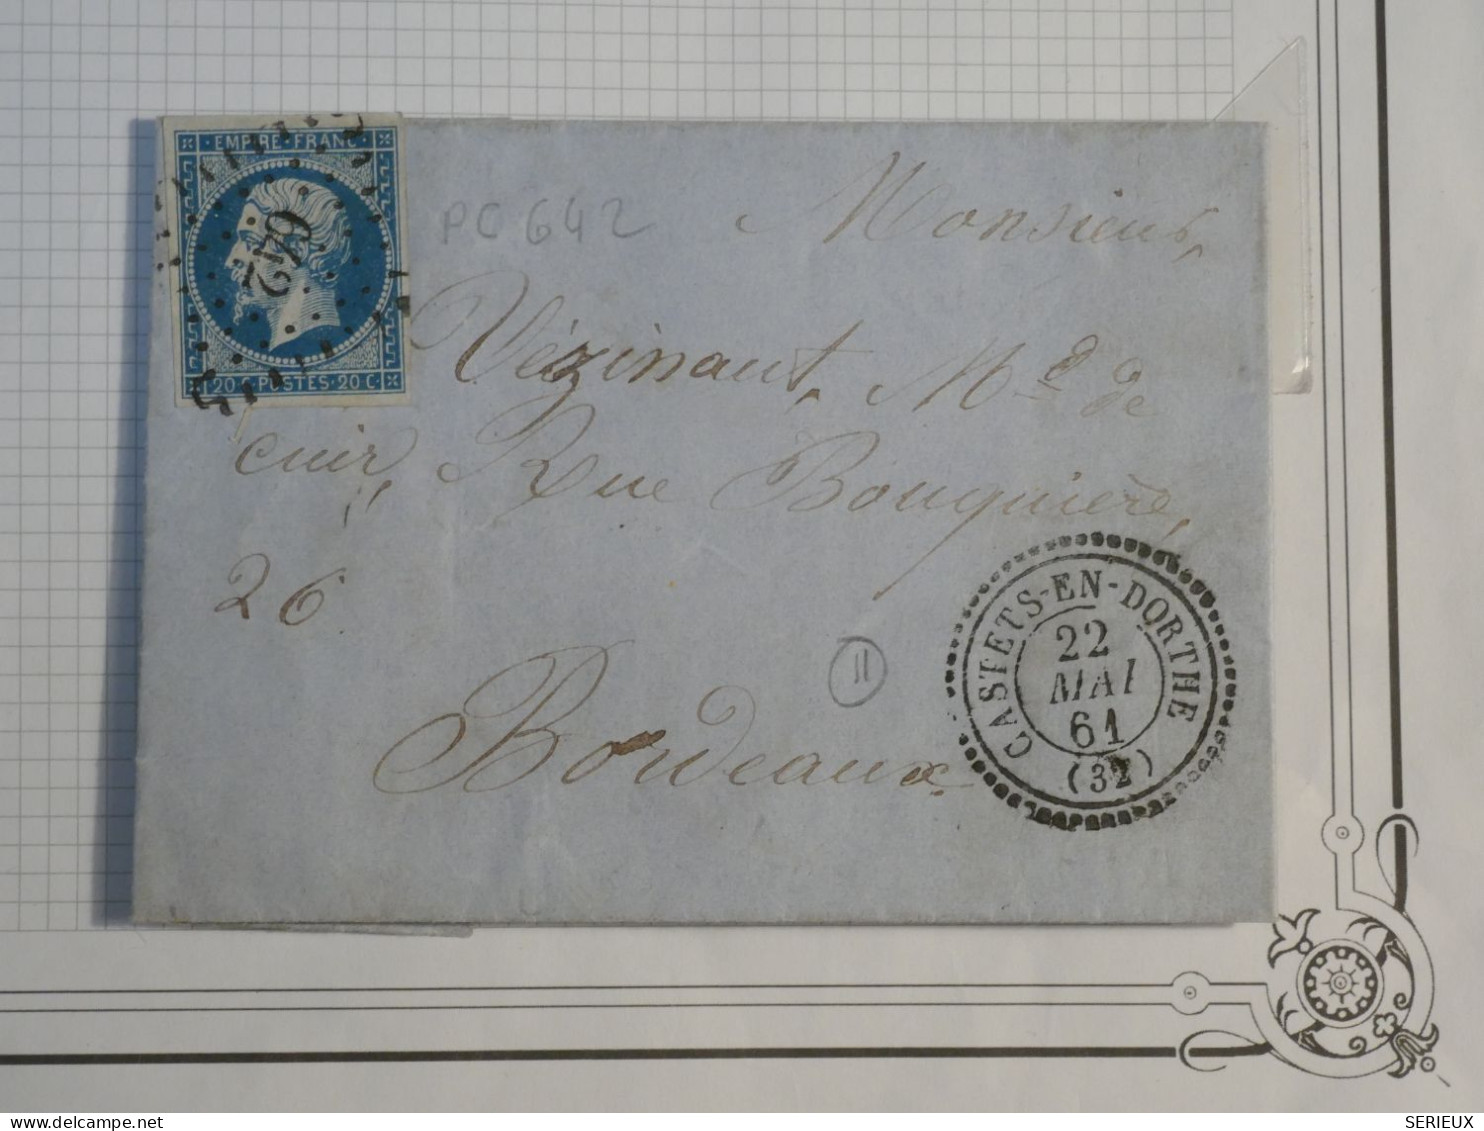 EMPIRE · FRANC
642
20 · POSTES · 20 C
PC 642
Monsieur,
Vézinaut, Md de
cuir, Rue Bouquière,
26
Bordeaux
11
CASTETS-EN-DORTHE
22
MAI
61
(32)
SERIEUX